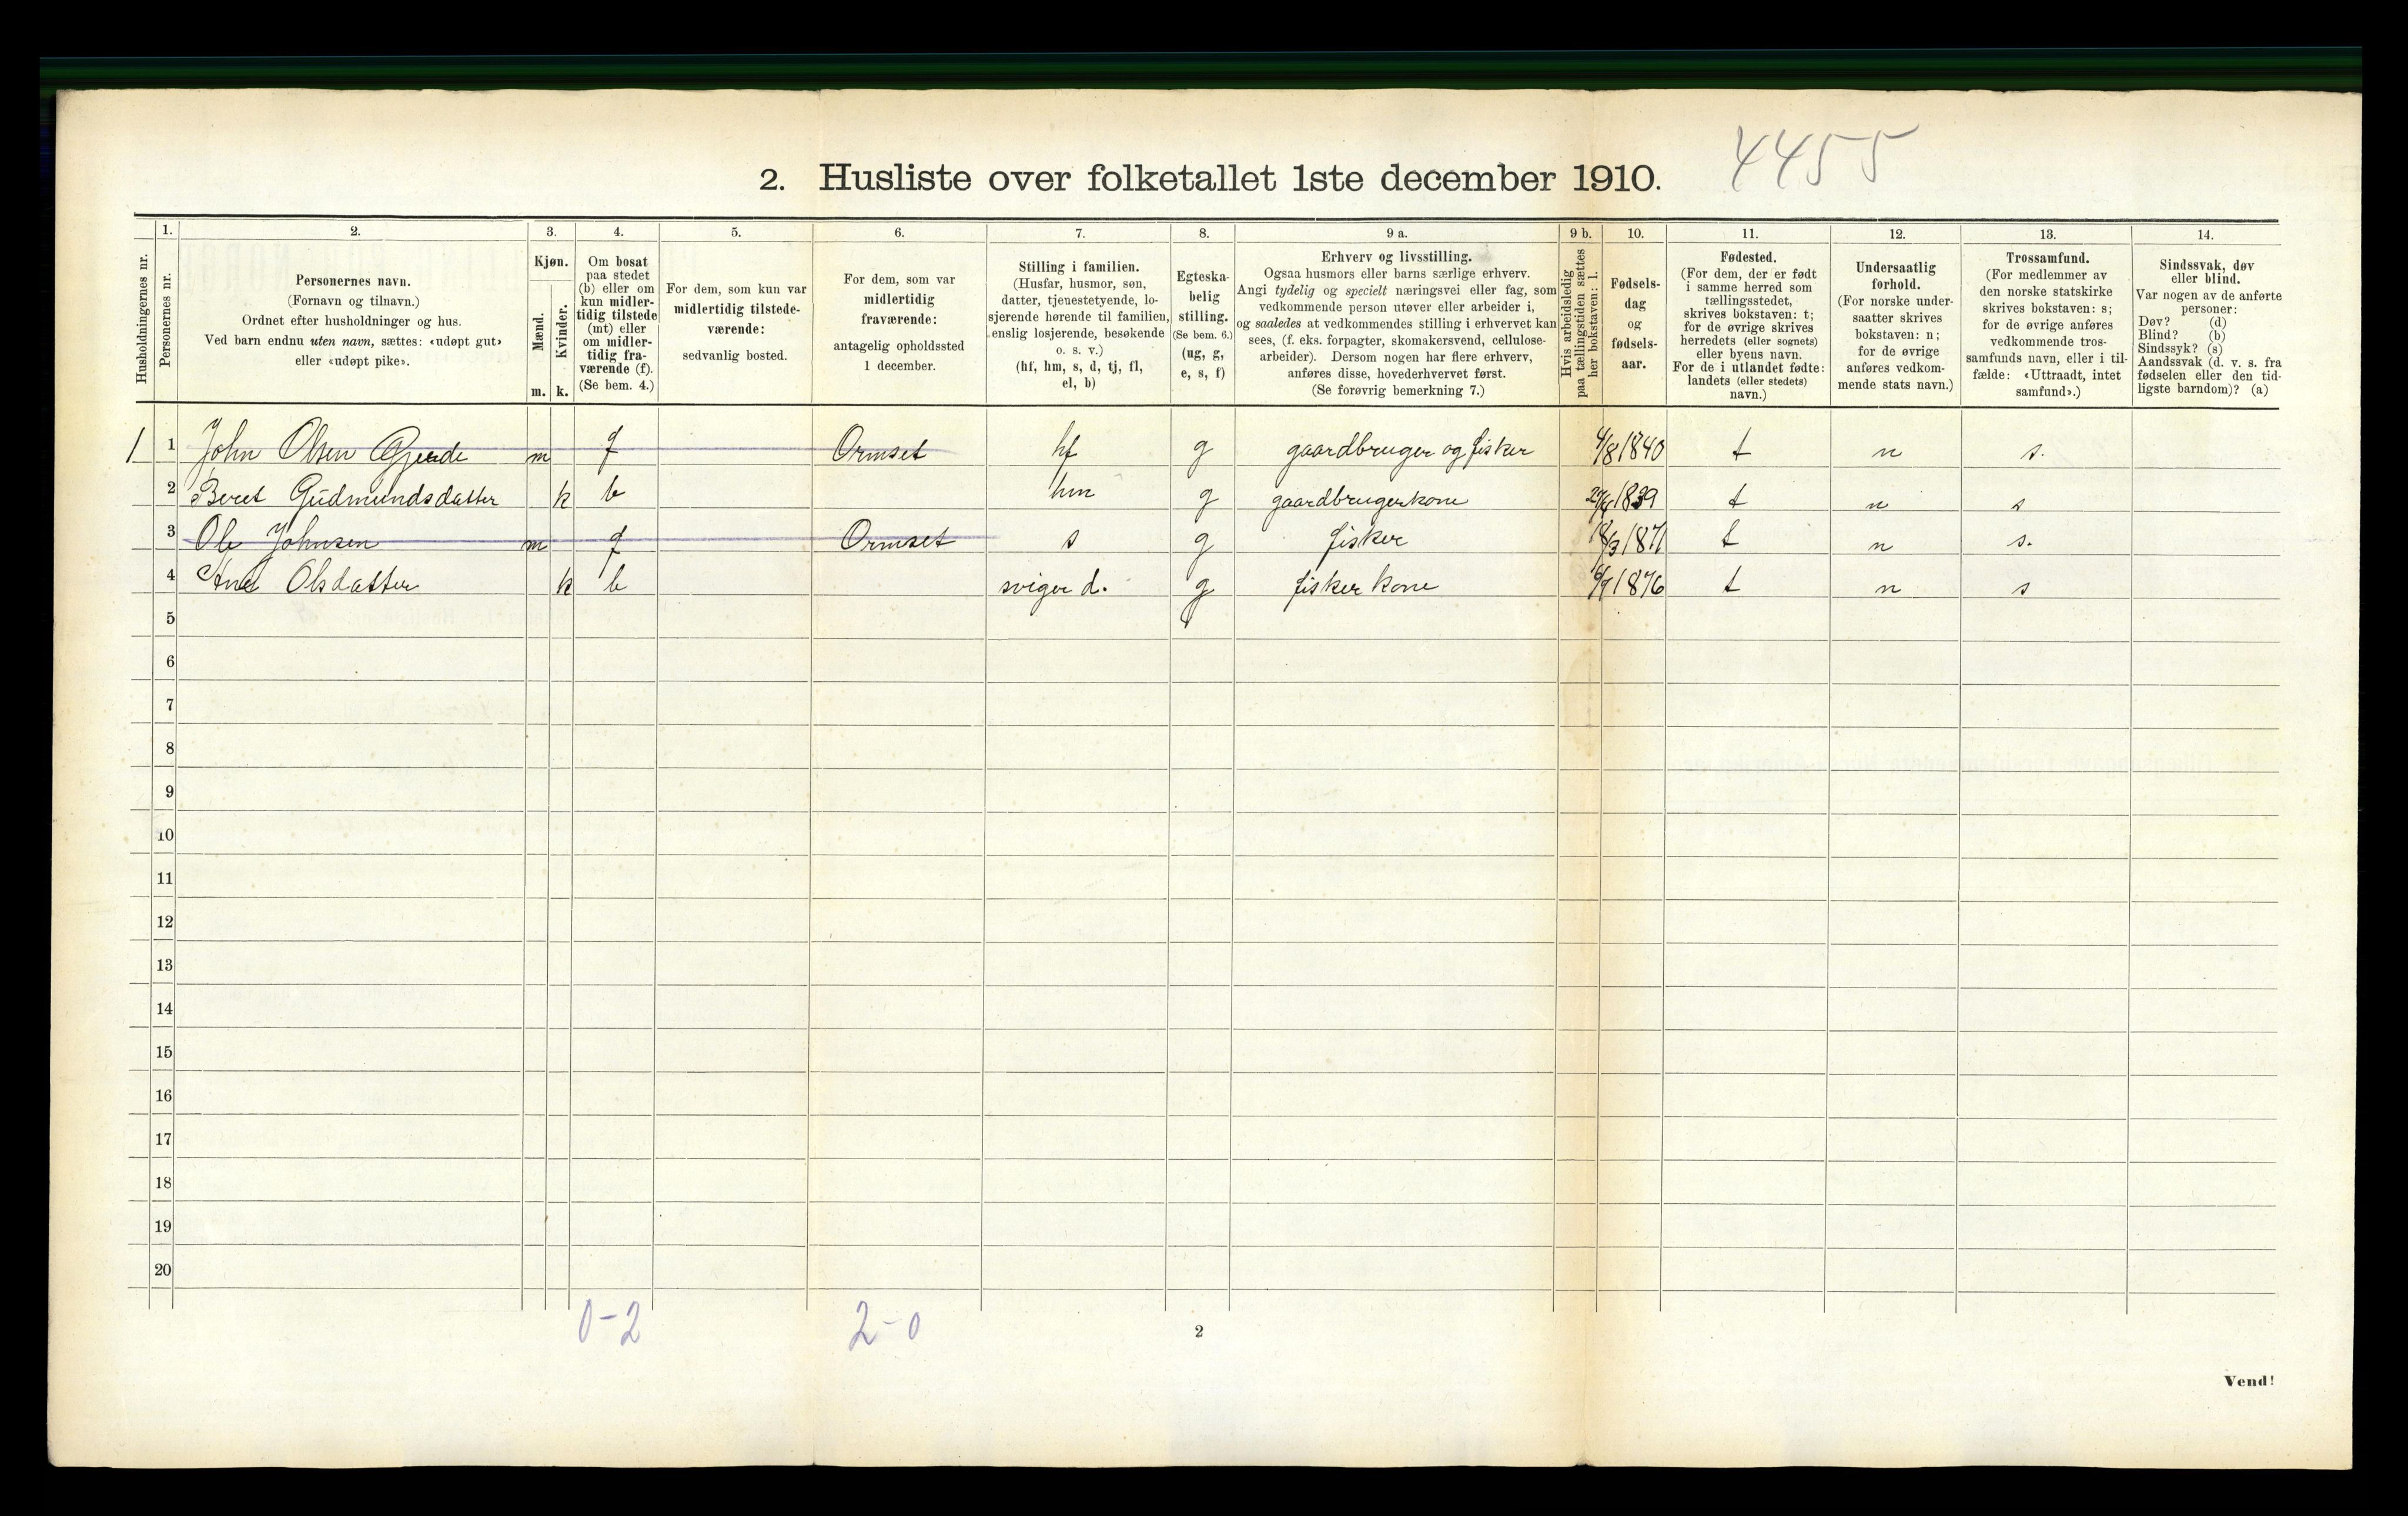 4455
2. Husliste over folketallet 1ste december 1910.
Husholdningernes nr.
1.
Personernes nr.
2.
Personernes navn.
(Fornavn og tilnavn.)
Ordnet efter husholdninger og hus.
Ved barn endnu uten navn, sættes: «udøpt gut»
eller «udøpt pike».
3.
Kjøn.
Mænd.
m.
Kvinder.
k.
4.
Om bosat
paa stedet
(b) eller om
kun midler-
tidig tilstede
(mt) eller
om midler-
tidig fra-
værende (f).
(Se bem. 4.)
5.
For dem, som kun var
midlertidig tilstede-
værende:
sedvanlig bosted.
6.
For dem, som var
midlertidig
fraværende:
antagelig opholdssted
1 december.
7.
Stilling i familien.
(Husfar, husmor, søn,
datter, tjenestetyende, lo-
sjerende hørende til familien,
enslig losjerende, besøkende
o. s. v.)
(hf, hm, s, d, tj, fl,
el, b)
8.
Egteska-
belig
stilling.
(Se bem. 6.)
(ug, g,
e, s, f)
9 a.
Erhverv og livsstilling.
Ogsaa husmors eller barns særlige erhverv.
Angi tydelig og specielt næringsvei eller fag, som
vedkommende person utøver eller arbeider i,
og saaledes at vedkommendes stilling i erhvervet kan
sees, (f. eks. forpagter, skomakersvend, cellulose-
arbeider). Dersom nogen har flere erhverv,
anføres disse, hovederhvervet først.
(Se forøvrig bemerkning 7.)
9 b.
Hvis arbeidsledig
paa tællingstiden sættes
her bokstaven: l.
10.
Fødsels-
dag
og
fødsels-
aar.
11.
Fødested.
(For dem, der er født
i samme herred som
tællingsstedet,
skrives bokstaven: t;
for de øvrige skrives
herredets (eller sognets)
eller byens navn.
For de i utlandet fødte:
landets (eller stedets)
navn.)
12.
Undersaatlig
forhold.
(For norske under-
saatter skrives
bokstaven: n;
for de øvrige
anføres vedkom-
mende stats navn.)
13.
Trossamfund.
(For medlemmer av
den norske statskirke
skrives bokstaven: s;
for de øvrige anføres
vedkommende tros-
samfunds navn, eller i til-
fælde: «Uttraadt, intet
samfund».)
14.
Sindssvak, døv
eller blind.
Var nogen av de anførte
personer:
Døv? (d)
Blind? (b)
Sindssyk? (s)
Aandssvak (d. v. s. fra
fødselen eller den tid-
ligste barndom)? (a)
1 1 John Olsen Gjerde m f Ormset hf g gaardbruger og fisker 4/8 1840 t n s.
2 Beret Gudmundsdatter k b hm g gaardbrugerkone 1839 t n s
3 Ole Johnsen m f Ormset s g fisker 18/3 1871 t n s.
4 Olsdatter k b sviger d. g fisker kone 1876 t n s
5
6
7
8
9
10
11
12
13
14
15
16
17
18
19
20
0-2 2-0
2
Vend!